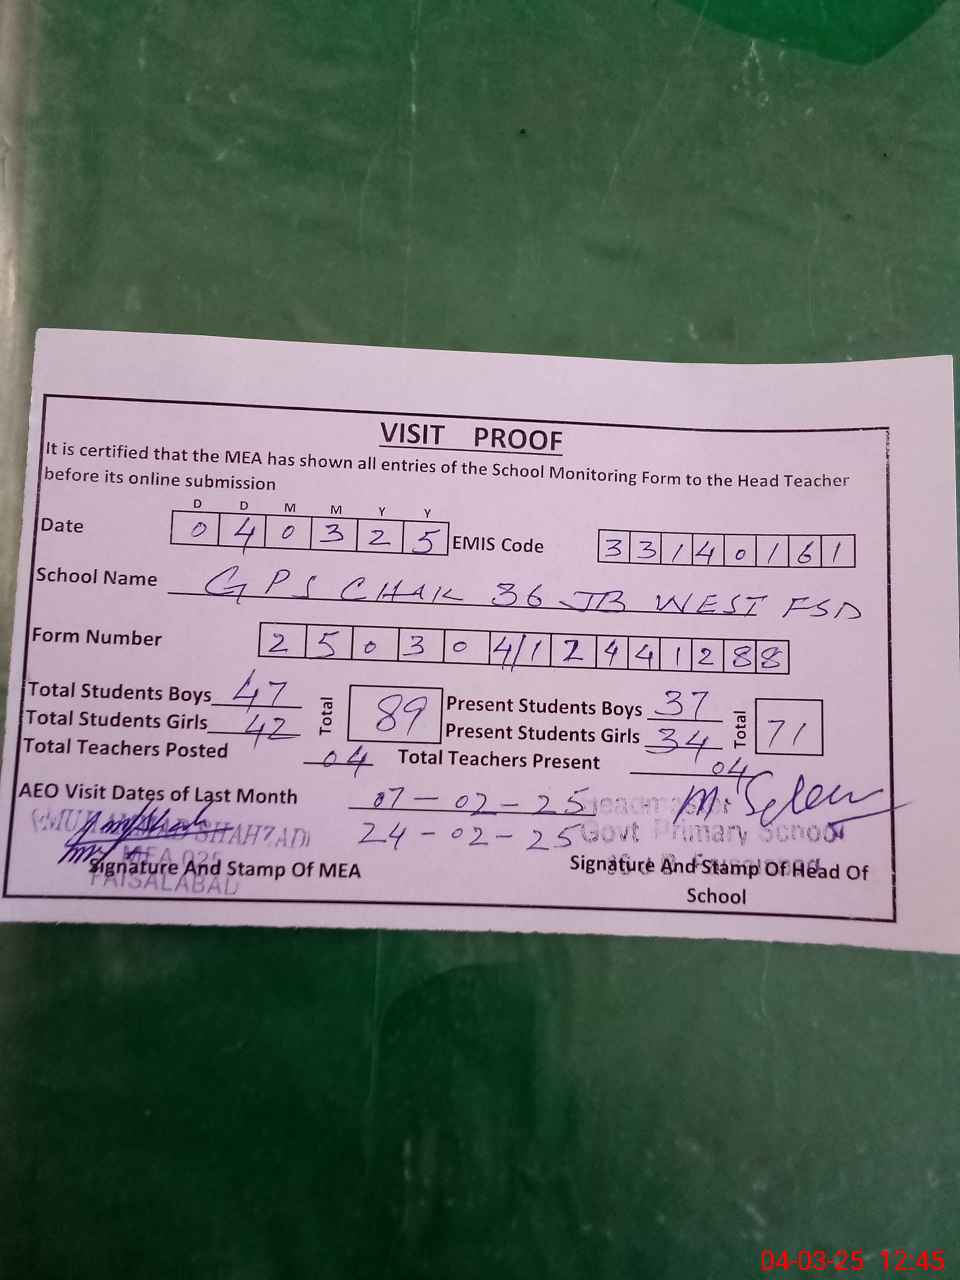 VISIT PROOF
It is certified that the MEA has shown all entries of the School Monitoring Form to the Head Teacher
before its online submission
D D M M Y Y
Date 0 4 0 3 2 5 EMIS Code 3 3 1 4 0 1 6 1
School Name GPS CHAK 36 JB WEST FSD
Form Number 2 5 0 3 0 4/1 2 4 4 1 2 8 8
Total Students Boys 47 Total 89 Present Students Boys 37 Total 71
Total Students Girls 42 Present Students Girls 34
Total Teachers Posted 04 Total Teachers Present 04
AEO Visit Dates of Last Month 07-02-25
24-02-25 Govt Primary School
MEA 025
FAISALABAD
Signature And Stamp Of MEA Signature And Stamp Of Head Of
School
04-03-25 12:45